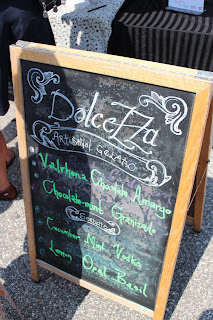 DolceZZa
Artisanal Gelato
Valrhona Chocolate Amargo
Chocolate-mint Granizado
Sorbetto
Cucumber Mint Vodka
Lemon Opal Basil